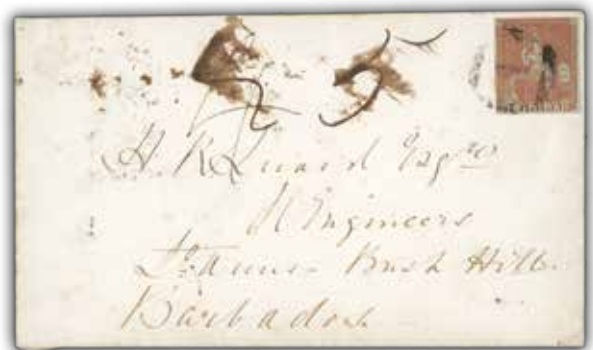 TRINIDAD
2 5
H R Luard Esqre
R Engineers
St Anns Bush Hill
Barbados.